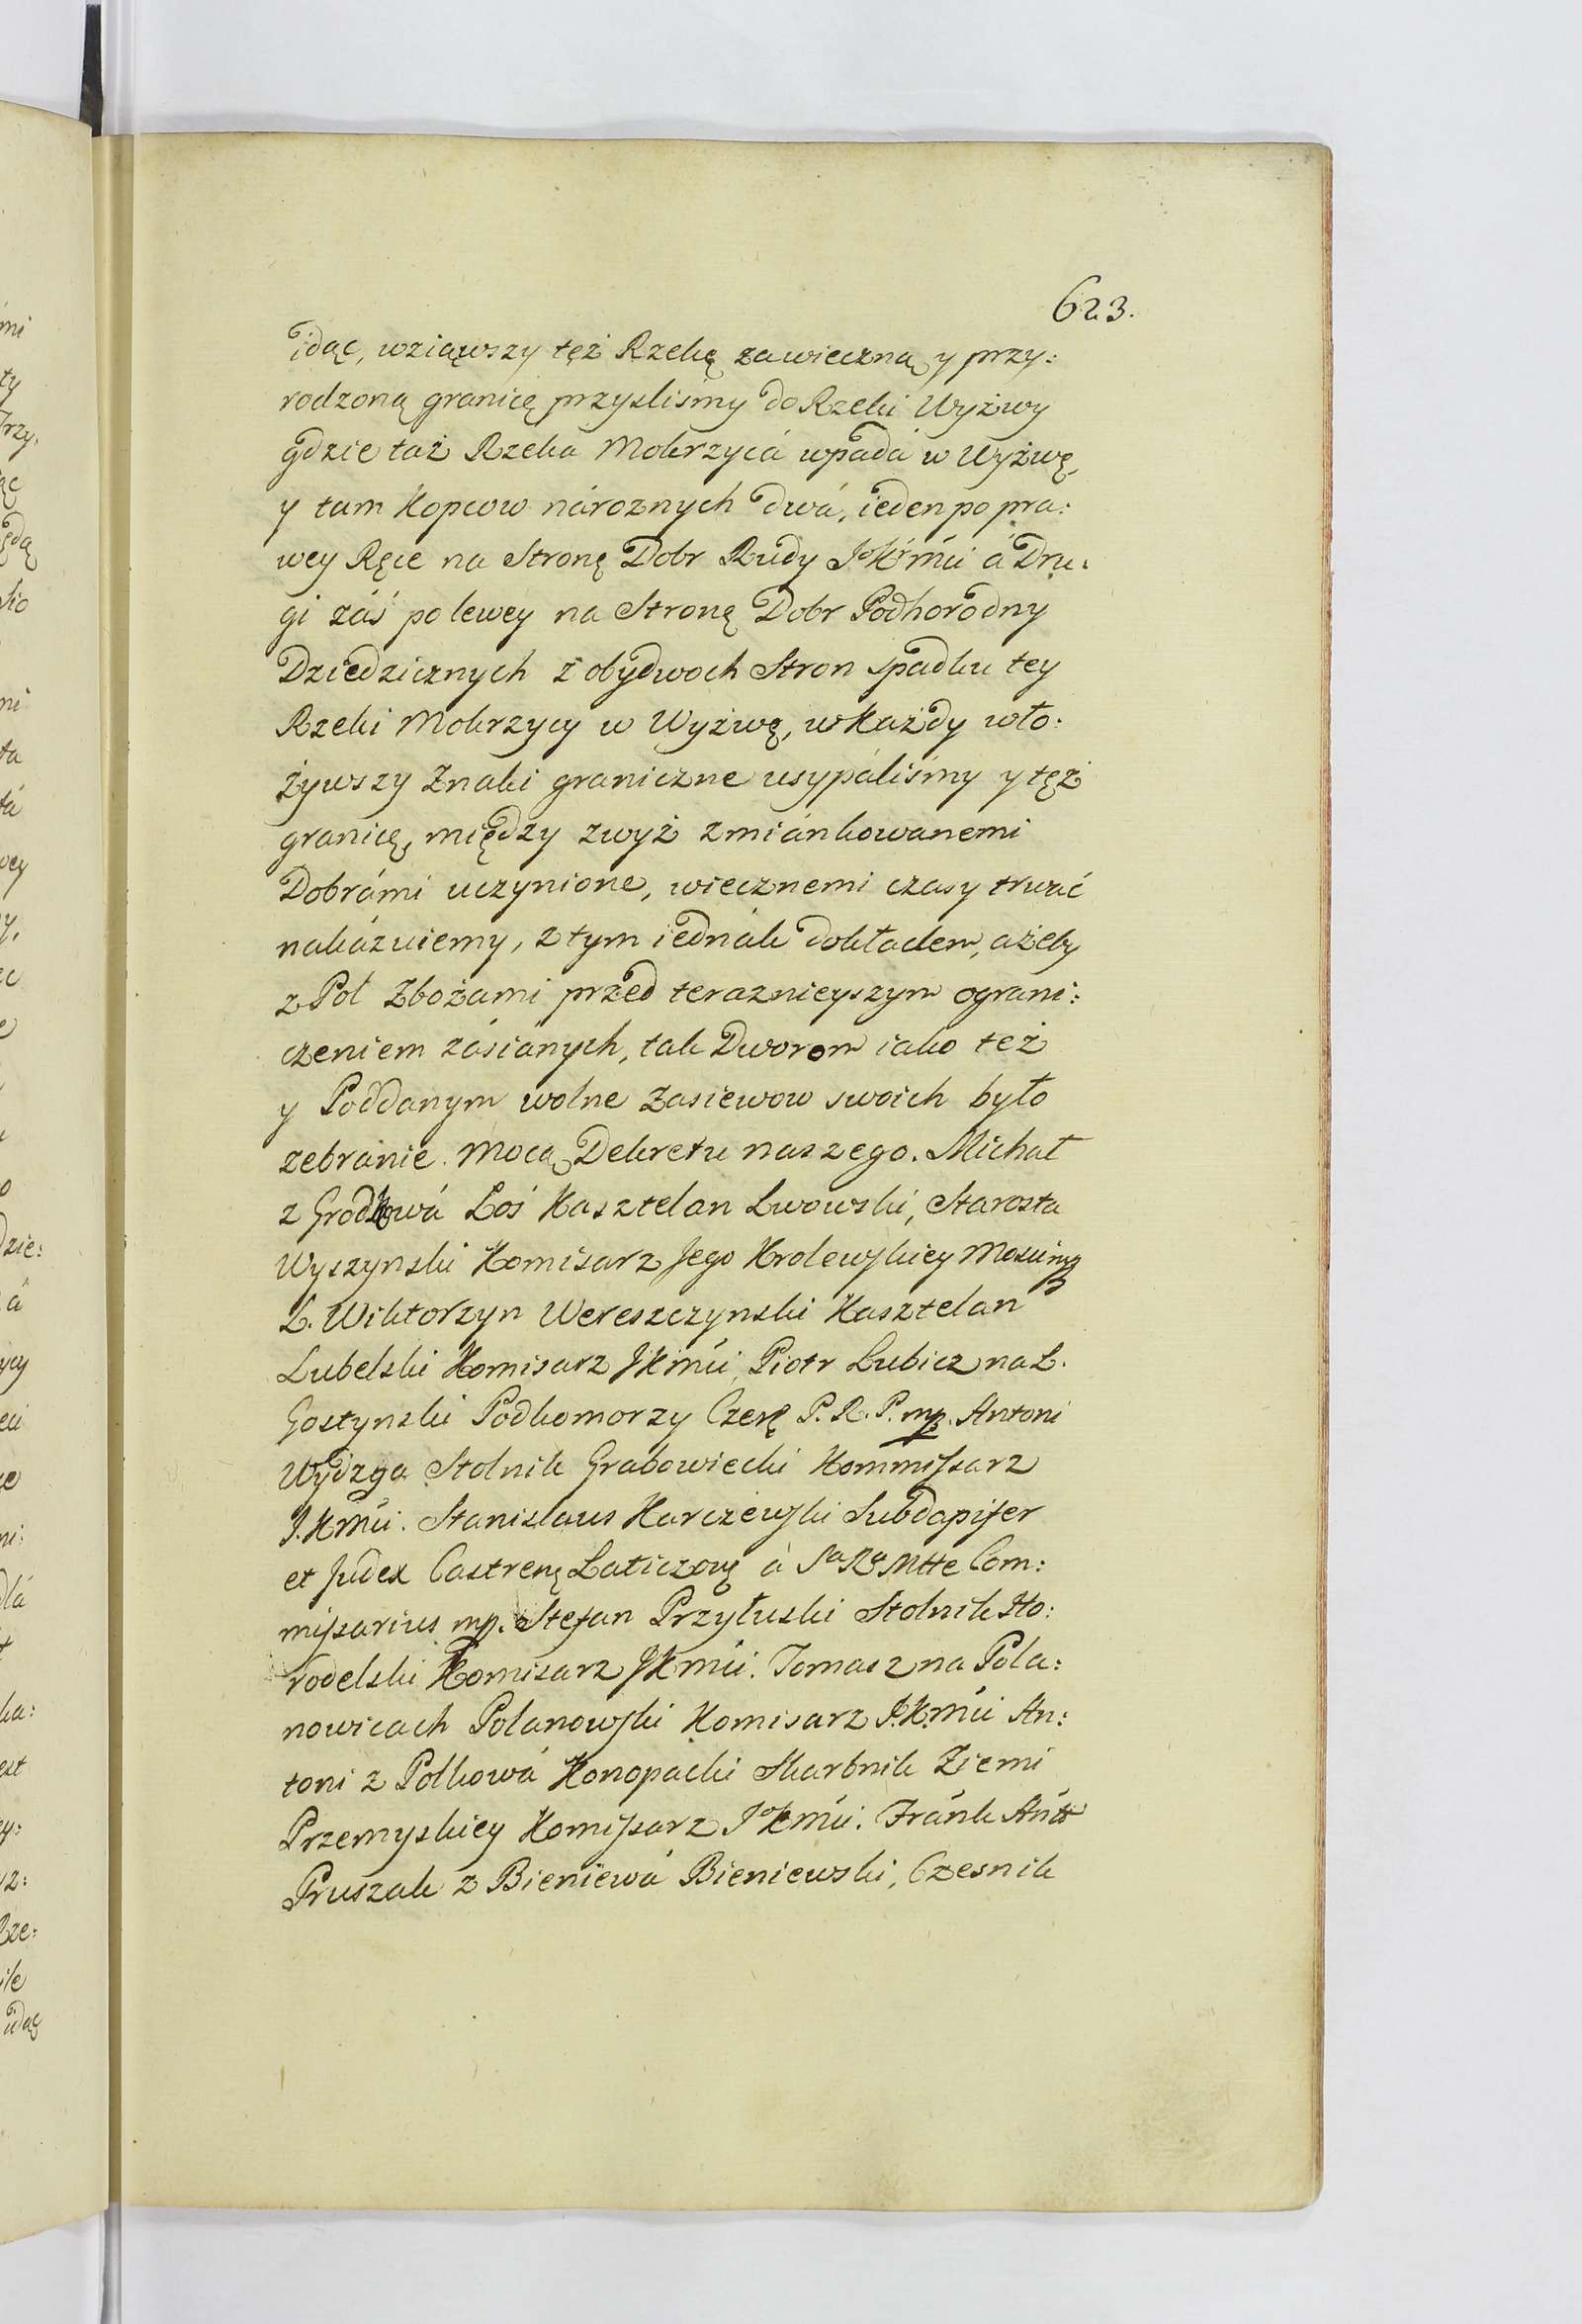 623.
idąc, wziąwszy tęż Rzekę za wieczną y przy:
rodzoną granicę przysliśmy do Rzeki Wyżwy
gdzie taż Rzeka Mokrzycá wpadá w Wyżwę,
y tam Kopcow nároznych dwá, ieden po pra:
wey Ręce na Stronę Dobr Rudy JoKrmći á Dru:
gi záś po lewey na Stronę Dobr Podhorodny
Dziedzicznych z obydwoch Stron spadku tey
Rzeki Mokrzycy w Wyżwę, w Każdy wło:
żywszy Znaki graniczne usypáliśmy y tęż
granicę, między zwyż zmiánkowanemi
Dobrámi uczynione, wiecznemi czasy trwáć
nakázuiemy, z tym iednák dokładem, ażeby
z Pol Zbożami przed teraznieyszym ograni:
czeniem zásianych, tak Dworom iako też
y Poddanym wolne Zasiewow swoich było
zebránie. Mocą Dekretu naszego. Michał
z Grodkowá Łoś Kasztelan Lwowski, Starosta
Wyszynski Komisarz Jego Krolewskiey Mosći mp
L. Wiktorzyn Wereszczynski Kasztelan
Lubelski Komisarz JKmći, Piotr Lubicz na L.
Gostynski Podkomorzy Czerę P. R. P. mp. Antoni
Wydzga Stolnik Grabowiecki Kommissarz
J.Kmći. Stanislaus Karczewski Subdapifer
et Judex Castrenę Laticzovę á Sa Ra Mtte Com:
missarius mp. Stefan Przyłuski Stolnik Ho:
rodelski Komisarz JKmći. Tomasz na Pola:
nowicach Polanowski Komisarz J.K.mći An:
toni z Polkowá Konopacki Skarbnik Ziemi
Przemyskiey Komissarz JoKmći. Fránk Ántt
Pruszak z Bieniewá Bieniewski, Czesnik